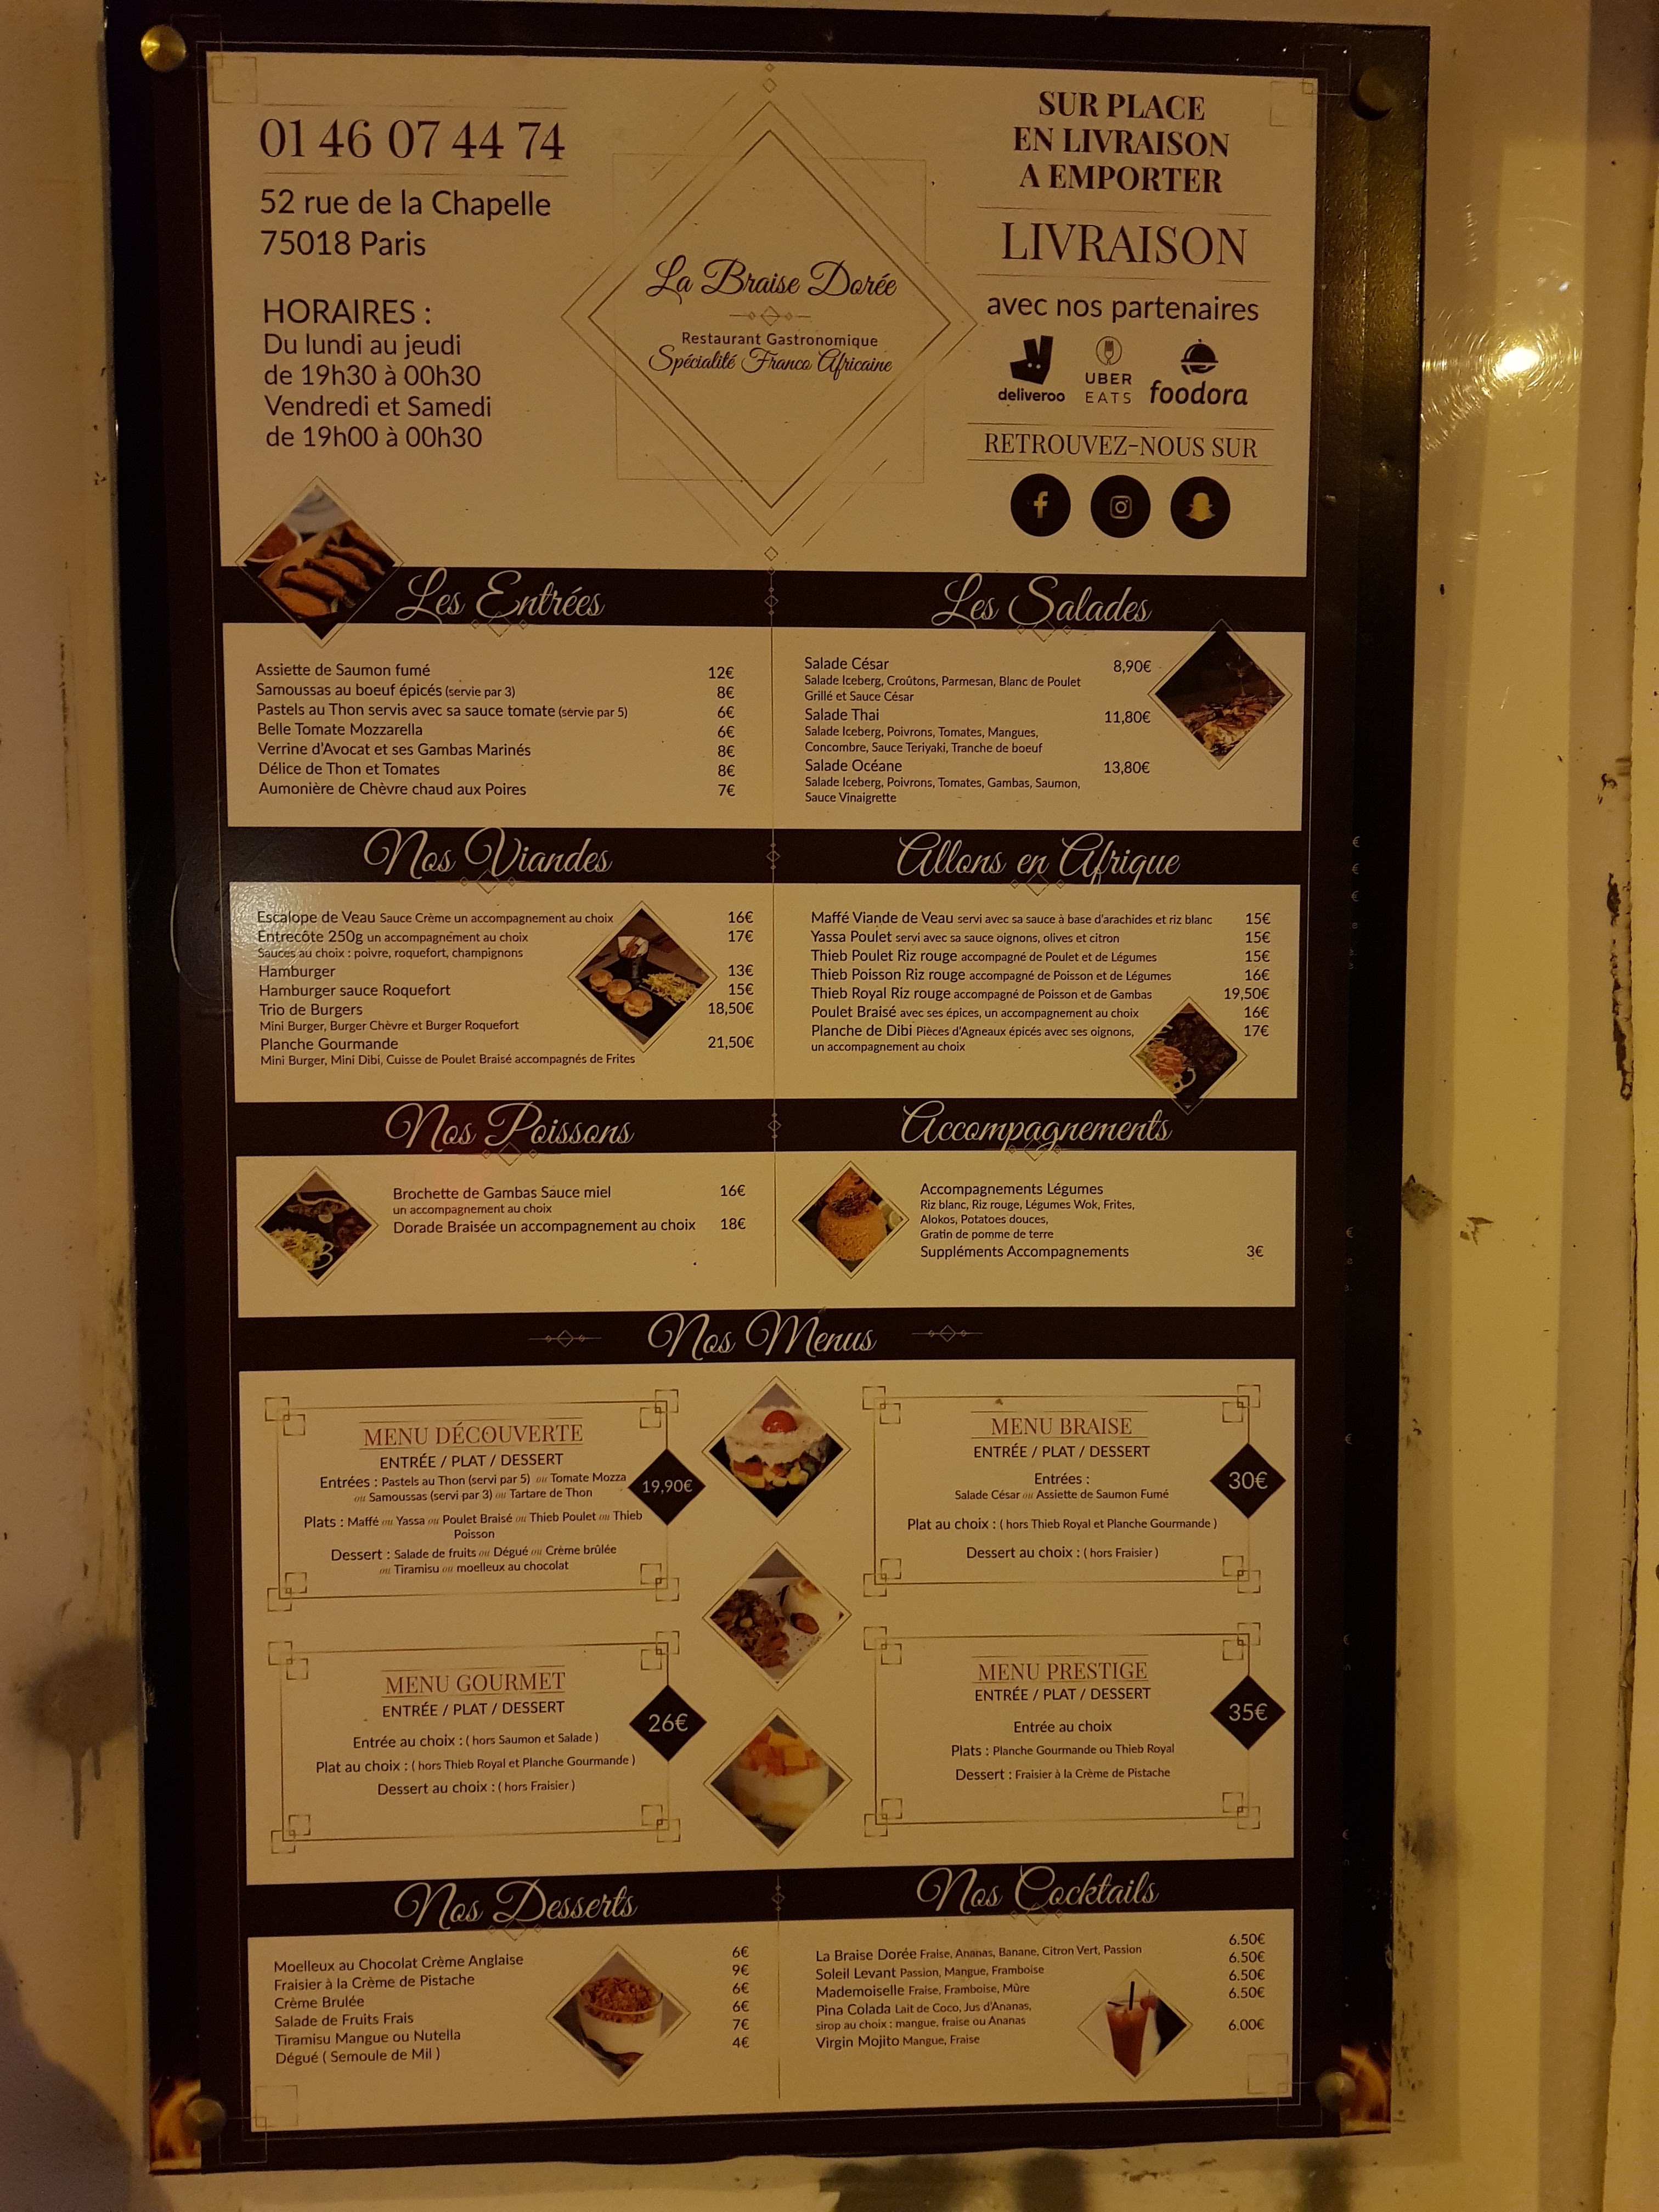 01 46 07 44 74
52 rue de la Chapelle
75018 Paris
HORAIRES :
Du lundi au jeudi
de 19h30 à 00h30
Vendredi et Samedi
de 19h00 à 00h30
La Braise Dorée
Restaurant Gastronomique
Spécialité Franco Africaine
SUR PLACE
EN LIVRAISON
A EMPORTER
LIVRAISON
avec nos partenaires
deliveroo
UBER
EATS
foodora
RETROUVEZ-NOUS SUR
Les Entrées
Assiette de Saumon fumé 12€
Samoussas au boeuf épicés (servie par 3) 8€
Pastels au Thon servis avec sa sauce tomate (servie par 5) 6€
Belle Tomate Mozzarella 6€
Verrine d'Avocat et ses Gambas Marinés 8€
Délice de Thon et Tomates 8€
Aumonière de Chèvre chaud aux Poires 7€
Les Salades
Salade César 8,90€
Salade Iceberg, Croûtons, Parmesan, Blanc de Poulet
Grillé et Sauce César
Salade Thai 11,80€
Salade Iceberg, Poivrons, Tomates, Mangues,
Concombre, Sauce Teriyaki, Tranche de boeuf
Salade Océane 13,80€
Salade Iceberg, Poivrons, Tomates, Gambas, Saumon,
Sauce Vinaigrette
Nos Viandes
Escalope de Veau Sauce Crème un accompagnement au choix 16€
Entrecôte 250g un accompagnement au choix 17€
Sauces au choix : poivre, roquefort, champignons
Hamburger 13€
Hamburger sauce Roquefort 15€
Trio de Burgers 18,50€
Mini Burger, Burger Chèvre et Burger Roquefort
Planche Gourmande 21,50€
Mini Burger, Mini Dibi, Cuisse de Poulet Braisé accompagnés de Frites
Allons en Afrique
Maffé Viande de Veau servi avec sa sauce à base d'arachides et riz blanc 15€
Yassa Poulet servi avec sa sauce oignons, olives et citron 15€
Thieb Poulet Riz rouge accompagné de Poulet et de Légumes 15€
Thieb Poisson Riz rouge accompagné de Poisson et de Légumes 16€
Thieb Royal Riz rouge accompagné de Poisson et de Gambas 19,50€
Poulet Braisé avec ses épices, un accompagnement au choix 16€
Planche de Dibi Pièces d'Agneaux épicés avec ses oignons, 17€
un accompagnement au choix
Nos Poissons
Brochette de Gambas Sauce miel 16€
un accompagnement au choix
Dorade Braisée un accompagnement au choix 18€
Accompagnements
Accompagnements Légumes
Riz blanc, Riz rouge, Légumes Wok, Frites,
Alokos, Potatoes douces,
Gratin de pomme de terre
Suppléments Accompagnements 3€
Nos Menus
MENU DÉCOUVERTE
ENTRÉE / PLAT / DESSERT
Entrées : Pastels au Thon (servi par 5) ou Tomate Mozza
ou Samoussas (servi par 3) ou Tartare de Thon
19,90€
Plats : Maffé ou Yassa ou Poulet Braisé ou Thieb Poulet ou Thieb
Poisson
Dessert : Salade de fruits ou Dégué ou Crème brûlée
ou Tiramisu ou moelleux au chocolat
MENU BRAISE
ENTRÉE / PLAT / DESSERT
Entrées :
30€
Salade César ou Assiette de Saumon Fumé
Plat au choix : ( hors Thieb Royal et Planche Gourmande )
Dessert au choix : ( hors Fraisier )
MENU GOURMET
ENTRÉE / PLAT / DESSERT
26€
Entrée au choix : ( hors Saumon et Salade )
Plat au choix : ( hors Thieb Royal et Planche Gourmande )
Dessert au choix : ( hors Fraisier )
MENU PRESTIGE
ENTRÉE / PLAT / DESSERT
35€
Entrée au choix
Plats : Planche Gourmande ou Thieb Royal
Dessert : Fraisier à la Crème de Pistache
Nos Desserts
Moelleux au Chocolat Crème Anglaise 6€
Fraisier à la Crème de Pistache 9€
Crème Brulée 6€
Salade de Fruits Frais 6€
Tiramisu Mangue ou Nutella 7€
Dégué ( Semoule de Mil ) 4€
Nos Cocktails
La Braise Dorée Fraise, Ananas, Banane, Citron Vert, Passion 6.50€
Soleil Levant Passion, Mangue, Framboise 6.50€
Mademoiselle Fraise, Framboise, Mûre 6.50€
Pina Colada Lait de Coco, Jus d'Ananas, 6.50€
sirop au choix : mangue, fraise ou Ananas
Virgin Mojito Mangue, Fraise 6.00€